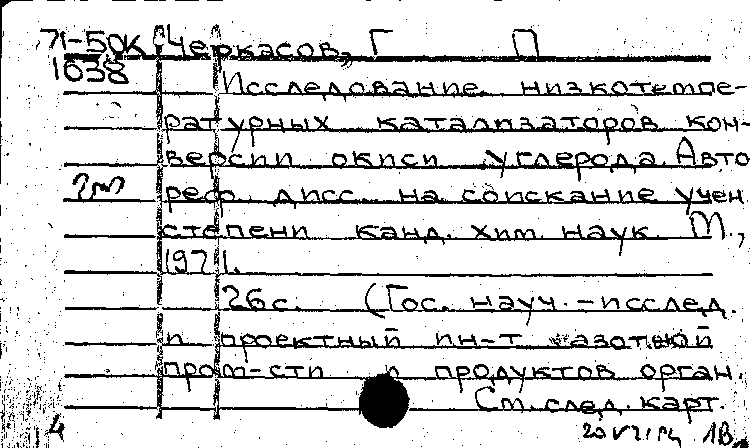 71-50K Черкасов, Г П
1038
Исследование низкотемпе-
ратурных катализаторов кон-
версии окиси углерода. Авто
реф. дисс. на соискание учен
степени канд. хим. наук. М.,
1971.
26 с. (Гос. науч.-исслед.
и проектный ин-т азотной
пром-сти и продуктов орган.
См. след. карт.
4